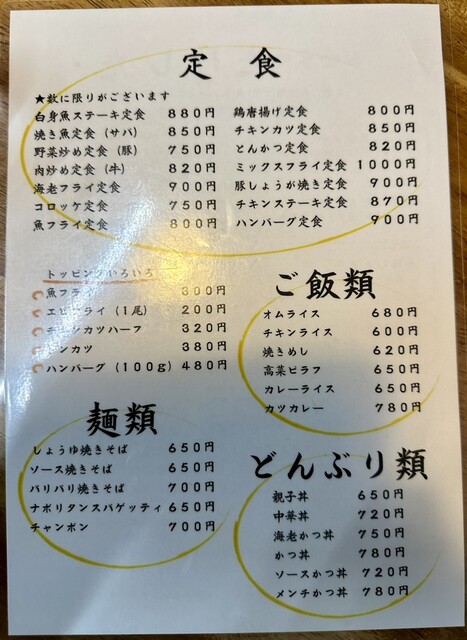 定食
★数に限りがございます
白身魚ステーキ定食 880円
焼き魚定食（サバ） 850円
野菜炒め定食（豚） 750円
肉炒め定食（牛） 820円
海老フライ定食 900円
コロッケ定食 750円
魚フライ定食 800円
鶏唐揚げ定食 800円
チキンカツ定食 850円
とんかつ定食 820円
ミックスフライ定食 1000円
豚しょうが焼き定食 900円
チキンステーキ定食 870円
ハンバーグ定食 900円
トッピングいろいろ
魚フライ 300円
エビフライ（1尾） 200円
チキンカツハーフ 320円
トンカツ 380円
ハンバーグ（100g） 480円
ご飯類
オムライス 680円
チキンライス 600円
焼きめし 620円
高菜ピラフ 650円
カレーライス 650円
カツカレー 780円
麺類
しょうゆ焼きそば 650円
ソース焼きそば 650円
パリパリ焼きそば 700円
ナポリタンスパゲッティ 650円
チャンポン 700円
どんぶり類
親子丼 650円
中華丼 720円
海老かつ丼 780円
かつ丼 780円
ソースかつ丼 720円
メンチかつ丼 780円